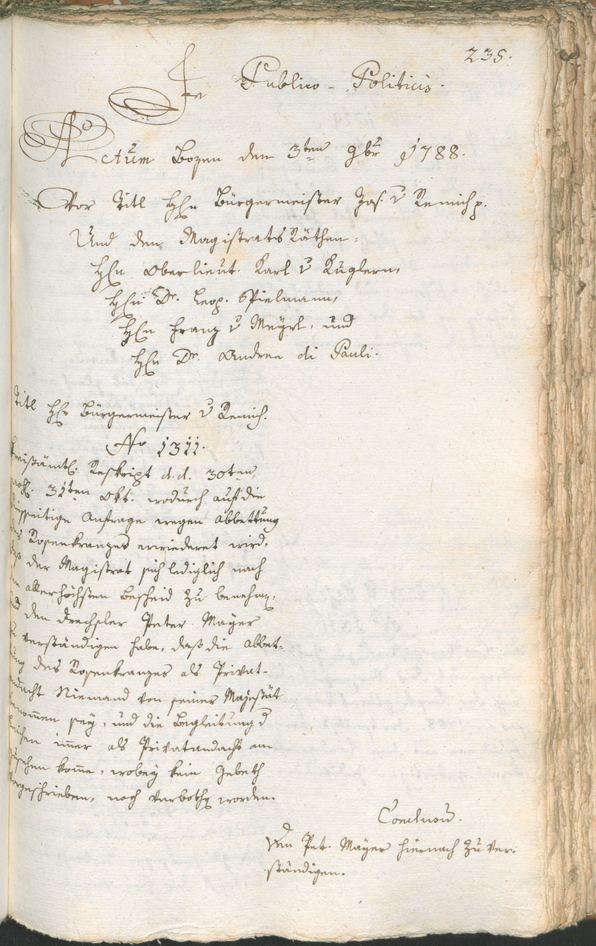 235.
In Publico-Politicis.
Actum Bozen den 3ten 9br 1788.
Vor Titl Hhn Bürgermeister Jos. v Remich p.
Und den Magistrats Räthen.
Hhn Oberlieut. Karl v Kuglern,
Hhn Dr. Leop. Spielmann,
Hhn Franz v Mayrl, und
Hhn Dr. Andree di Pauli.
Titl Hhr Bürgermeister v Remich.
No 1311.
Kreisämtl. Reskript d.d. 30ten
31ten Okt. wodurch auf die
seitige Anfrage wegen Abbettung
Rosenkranzes erwiederet wird,
der Magistrat sich lediglich nach
allerhöchsten Bescheid zu benehmen,
den Drechsler Peter Mayer
verständigen habe, daß die Abbet-
des Rosenkranzes als Privat-
andacht Niemand von seiner Majestät
benommen sey, und die Begleitung d
immer als Privatandacht an-
zusehen komme, wobey kein Gebeth
vorgeschrieben, noch verbothen worden.
Conclusum.
Den Pet. Mayer hiernach zu ver-
ständigen.